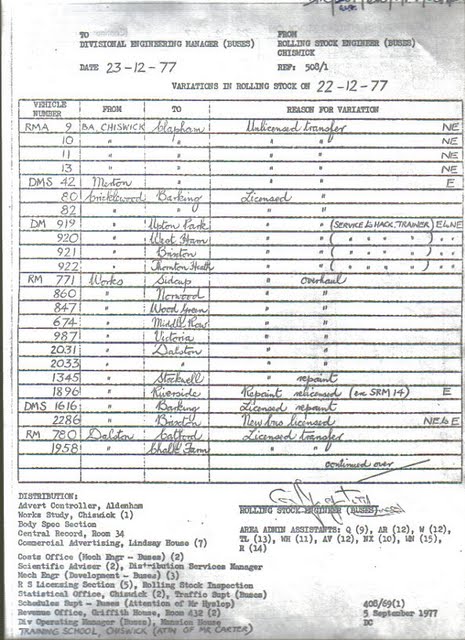 TO FROM
DIVISIONAL ENGINEERING MANAGER (BUSES) ROLLING STOCK ENGINEER (BUSES)
CHISWICK
DATE 23-12-77 REF: 508/1
VARIATIONS IN ROLLING STOCK ON 22-12-77
VEHICLE NUMBER FROM TO REASON FOR VARIATION
RMA 9 BA. CHISWICK Clapham Unlicensed transfer NE
10 " " " " NE
11 " " " " NE
13 " " " " NE
DMS 42 Merton " " " E
80 Cricklewood Barking Licensed "
82 " " " "
DM 919 " Upton Park " " (SERVICE to HACK TRAINER) E to NE
920 " West Ham " " ( " " " " ) " "
921 " Brixton " " ( " " " " ) " "
922 " Thornton Heath " " ( " " " " ) " "
RM 771 Works Sidcup " overhaul
860 " Norwood " "
847 " Wood Green " "
674 " Middle Row " "
987 " Victoria " "
2031 " Dalston " "
2033 " " " "
1345 " Stockwell " repaint
1896 " Riverside Repaint relicensed (ex SRM 14) E
DMS 1616 " Barking Licensed repaint
2286 " Brixton New bus licensed NE to E
RM 780 Dalston Catford Licensed transfer
1958 " Chalk Farm " "
continued over
DISTRIBUTION:
Advert Controller, Aldenham
Works Study, Chiswick (1)
Body Spec Section
Central Record, Room 34
Commercial Advertising, Lindsay House (7)
Costs Office (Mech Engr - Buses) (2)
Scientific Adviser (2), Distribution Services Manager
Mech Engr (Development - Buses) (3)
R S Licensing Section (5), Rolling Stock Inspection
Statistical Office, Chiswick (2), Traffic Supt (Buses)
Schedules Supt - Buses (Attention of Mr Hyslop)
Revenue Office, Griffith House, Room 432 (2)
Div Operating Manager (Buses), Mansion House
TRAINING SCHOOL, CHISWICK (ATTN OF MR CARTER)
ROLLING STOCK ENGINEER (BUSES)
AREA ADMIN ASSISTANTS: Q (9), AR (12), W (12),
TL (13), WH (11), AV (12), NX (10), WN (15),
R (14)
408/69(1)
5 September 1977
DC